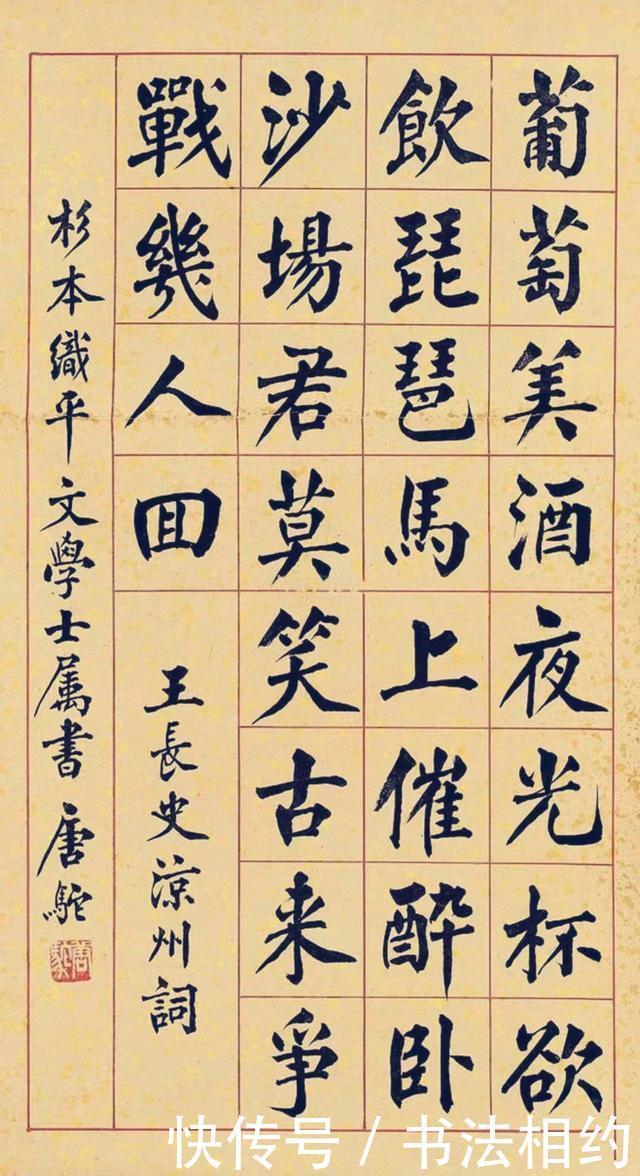 葡萄美酒夜光杯欲
飲琵琶馬上催醉卧
沙場君莫笑古来爭
戰幾人囬
王長史涼州詞
杉本織平文學士属書 唐駝
唐駝
快传号 / 书法相约